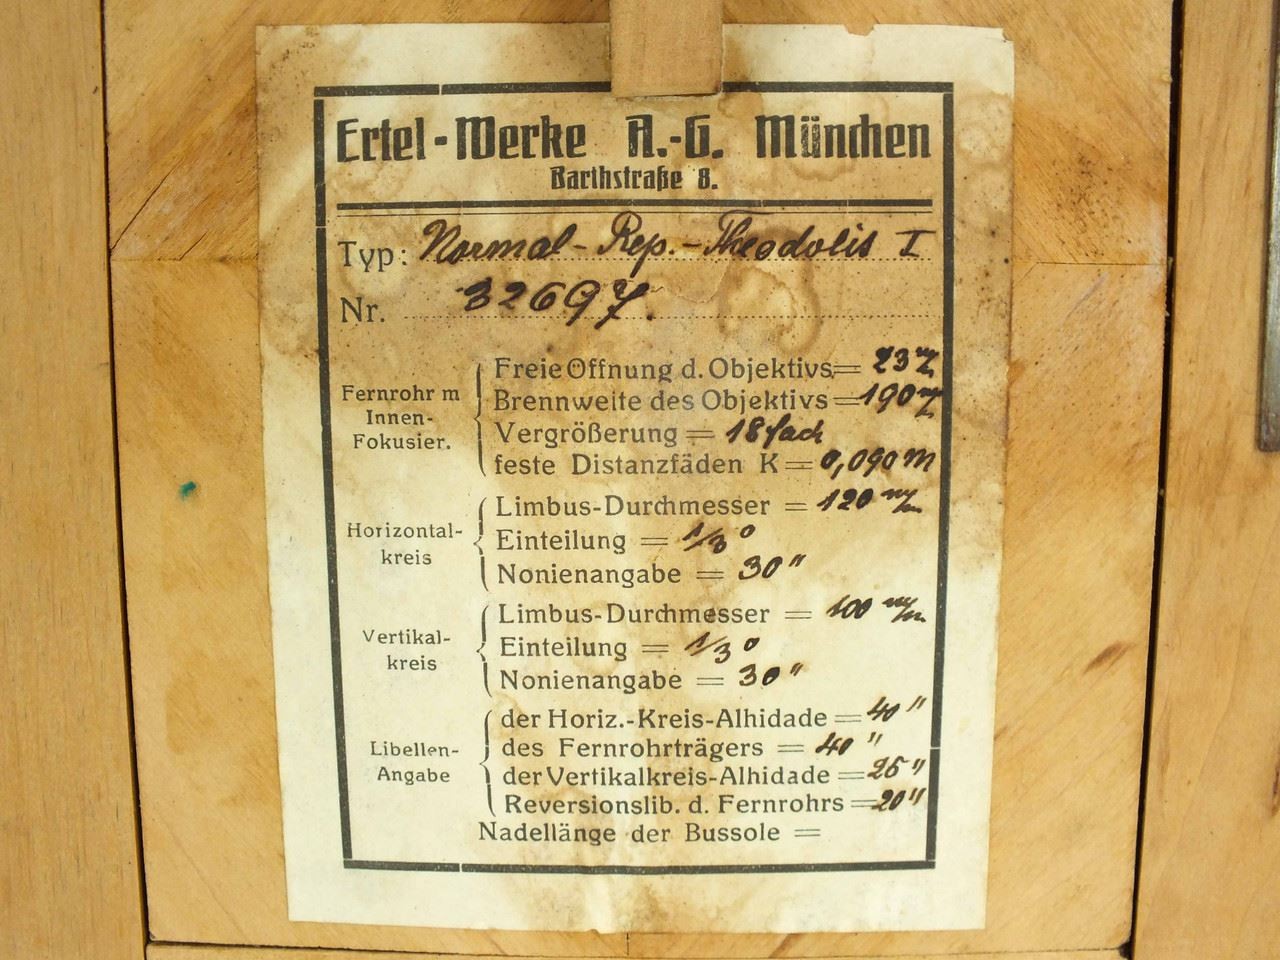 Ertel-Werke A.-G. München
Barthstraße 8.
Typ: Normal-Rep.-Theodolit I
Nr. 32697.
Fernrohr m
Innen-
Fokusier.
Freie Öffnung d. Objektivs= 23 m/m
Brennweite des Objektivs=190 m/m
Vergrößerung = 18 fach
feste Distanzfäden K = 0,090 m
Horizontal-
kreis
Limbus-Durchmesser = 120 m/m
Einteilung = 1/3°
Nonienangabe = 30"
Vertikal-
kreis
Limbus-Durchmesser = 100 m/m
Einteilung = 1/3°
Nonienangabe = 30"
Libellen-
Angabe
der Horiz.-Kreis-Alhidade = 40"
des Fernrohrträgers = 40"
der Vertikalkreis-Alhidade = 25"
Reversionslib. d. Fernrohrs = 20"
Nadellänge der Bussole =